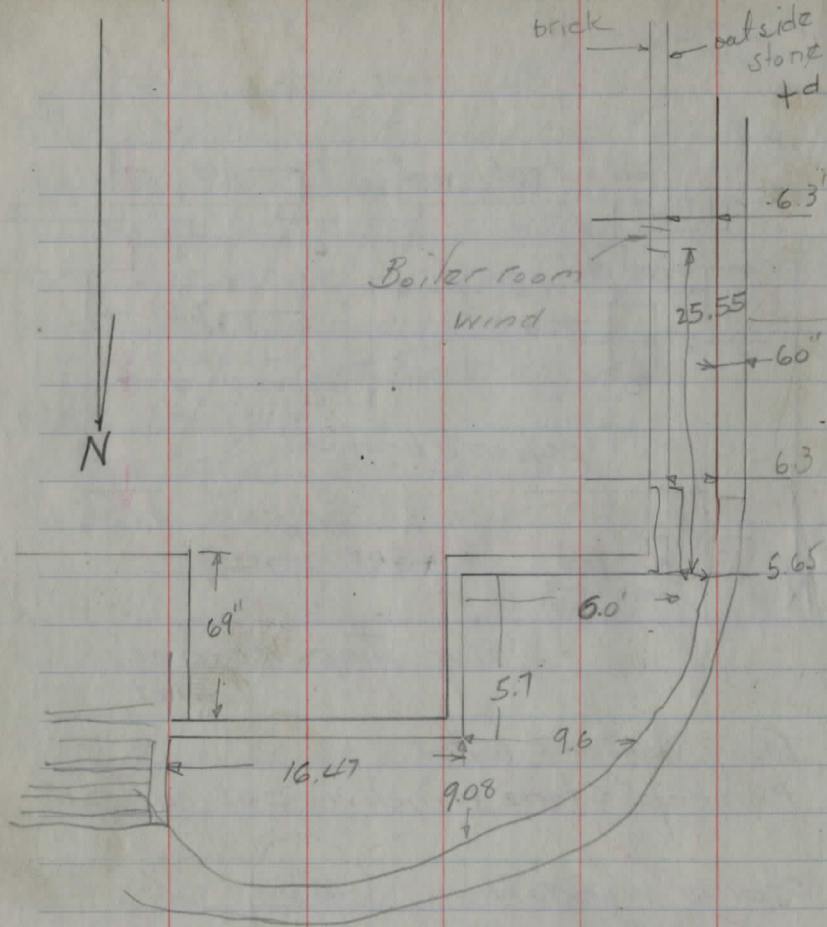 brick
outside
stone
+d
6.3'
Boiler room
Wind
25.55
60"
N
6.3
5.65
69"
6.0'
5.7
9.6
16.47
9.08